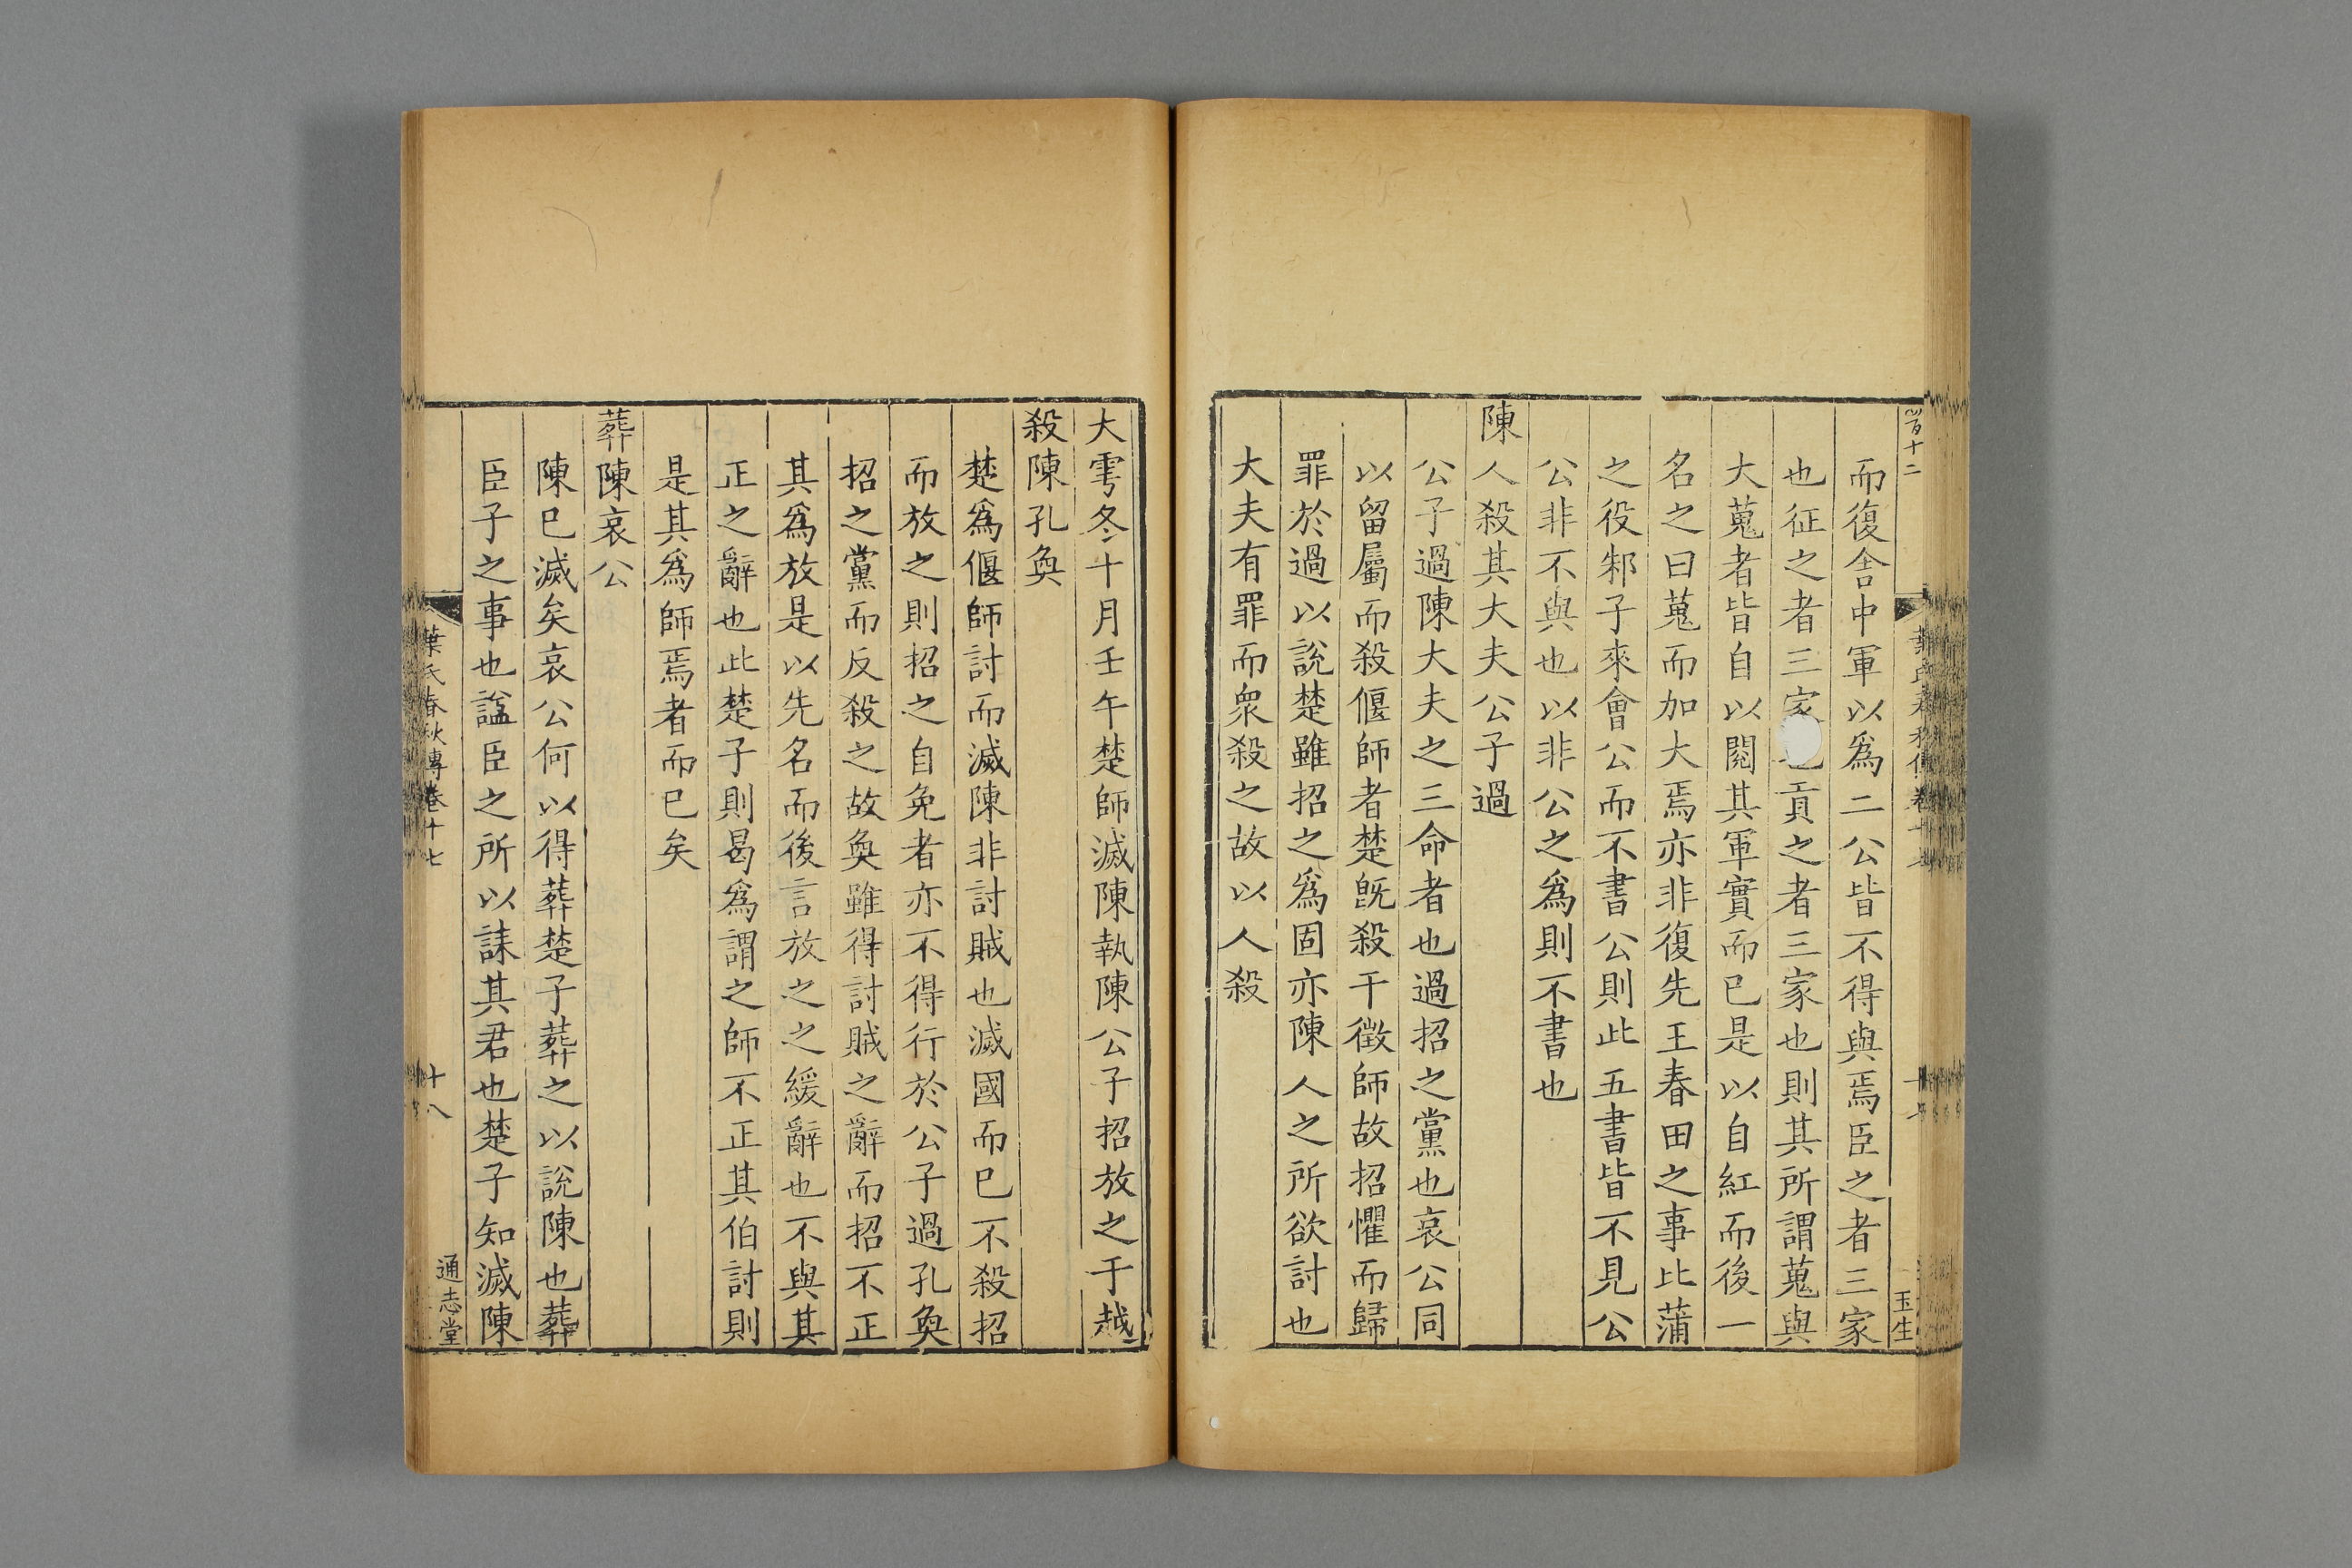 而復舍中軍以爲二公皆不得與焉臣之者三家
也征之者三家也貢之者三家也則其所謂蒐與
大蒐者皆自以閱其軍實而已是以自紅而後一
名之曰蒐而加大焉亦非復先王春田之事比蒲
之役邾子來會公而不書公則此五書皆不見公
公非不與也以非公之爲則不書也
陳人殺其大夫公子過
公子過陳大夫之三命者也過招之黨也哀公同
以留屬而殺偃師者楚旣殺干徵師故招懼而歸
罪於過以說楚雖招之爲固亦陳人之所欲討也
大夫有罪而衆殺之故以人殺
玉生
大雩冬十月壬午楚師滅陳執陳公子招放之于越
殺陳孔奐
楚爲偃師討而滅陳非討賊也滅國而已不殺招
而放之則招之自免者亦不得行於公子過孔奐
招之黨而反殺之故奐雖得討賊之辭而招不正
其爲放是以先名而後言放之之緩辭也不與其
正之辭也此楚子則曷爲謂之師不正其伯討則
是其爲師焉者而已矣
葬陳哀公
陳已滅矣哀公何以得葬楚子葬之以說陳也葬
臣子之事也諡臣之所以誄其君也楚子知滅陳
葉氏春秋傳卷十七
十八
通志堂